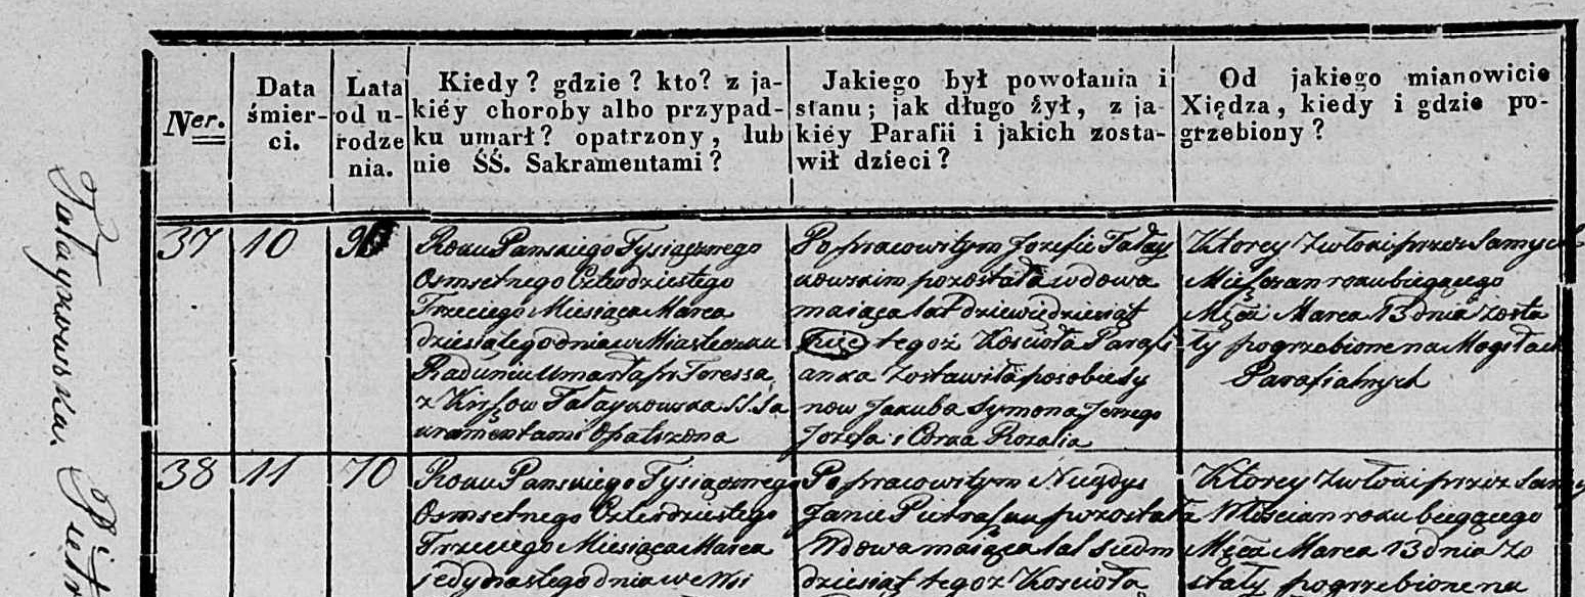 Ner.
Data śmier- ci.
Lata od u- rodze nia.
Kiedy? gdzie? kto? z ja-
kiéy choroby albo przypad-
ku umarł? opatrzony, lub
nie ŚŚ. Sakramentami?
Jakiego był powołania i
stanu; jak długo żył, z ja-
kiéy Parafii i jakich zosta-
wił dzieci?
Od jakiego mianowicie
Xiędza, kiedy i gdzie po-
grzebiony?
Tałaykowska.
37
10
Roku Panskiego Tysiącznego
Osmsetnego Czterdziestego
Trzeciego Miesiąca Marca
dziesiątego dnia w Miasteczku
Raduniu Umarła Teressa
z Tałaykowska SS. Sa
kramentami Opatrzona
Po pracowitym Jozefie Tałay
kowskim pozostała wdowa
maiąca lat dziewiędziesiąt
tegoż Kościoła Parafi
anka Zostawiła posobie Sy
now Jakuba Symona Jerzego
Jozefa i Corka Rozalia
Ktorey Zwłoki przez Samych
Mieszczan roku biegącego
Męca Marca 13 dnia zosta
ły pogrzebione na Mogiłach
Parafialnych
38
11
70
Roku Panskiego Tysiącznego
Osmsetnego Czterdziestego
Trzeciego Miesiąca Marca
jedynastego dnia we Wsi
Po pracowitym Niegdyś
Janie pozostała
Wdowa maiąca lat siedm
dziesiąt tegoż Kościoła
Ktorey Zwłoki przez Samy
Włościan roku biegącego
Męca Marca 13 dnia Zo
stały pogrzebione na
Pietr